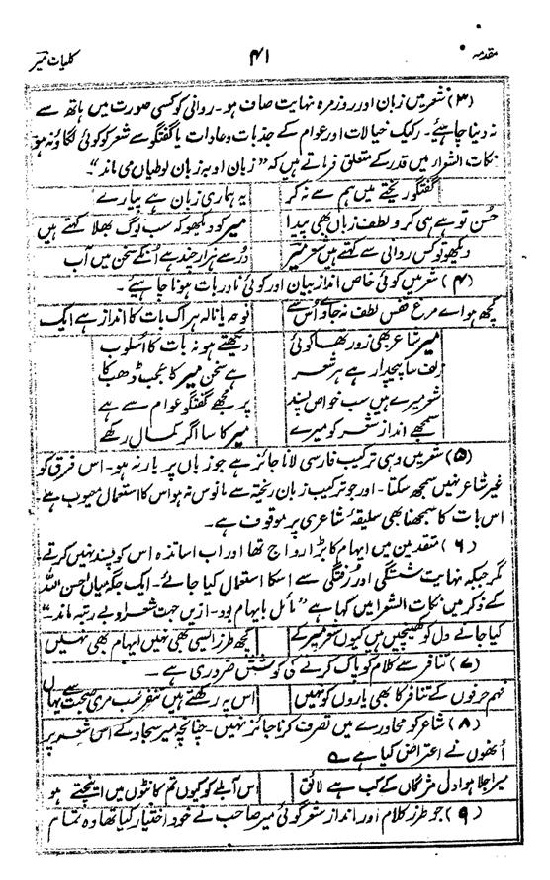 مقدمہ ۴۱ کلیات میر
(۳) شعر میں زبان اور روزمرہ نہایت صاف ہو۔ روانی کو کسی صورت میں ہاتھ سے
نہ دینا چاہیئے۔ رکیک خیالات اور عوام کے جذبات و عادات یا گفتگو سے شعر کو کوئی لگاؤ نہ ہو
نکات الشعراء میں قدر کے متعلق فرماتے ہیں کہ “زبان او بہ زبان لوطیاں می ماند”۔
گفتگو ریختے میں ہم سے نہ کر یہ ہماری زبان ہے پیارے
حُسن تو ہے ہی کرو لطف زباں بھی پیدا میر کو دیکھو کہ سب لوگ بھلا کہتے ہیں
دیکھو تو کس روانی سے کہتے ہیں شعر میر دُر سے ہزار چند ہے اُنکے سخن میں آب
(۴) شعر میں کوئی خاص انداز بیان اور کوئی نادر بات ہونا چاہیے۔
کچھ ہو اے مرغ قفس لطف نہ جاوے اُس سے نوحہ یا نالہ ہر اک بات کا انداز ہے ایک
میر شاعر بھی زور تھا کوئی دیکھتے ہو نہ بات کا اسلوب
زلف سا پیچدار ہے ہر شعر ہے سخن میر کا عجب ڈھب کا
شعر میرے ہیں سب خواص پسند پر مجھے گفتگو عوام سے ہے
سمجھے انداز شعر کو میرے میر کا سا اگر کمال رکھے
(۵) شعر میں وہی ترکیب فارسی لانا جائز ہے جو زباں پر بار نہ ہو۔ اس فرق کو
غیر شاعر نہیں سمجھ سکتا۔ اور جو ترکیب زبان ریختہ سے مانوس نہ ہو اس کا استعمال معیوب ہے
اس بات کا سمجھنا بھی سلیقۂ شاعری پر موقوف ہے۔
(۶) متقدمین میں ایہام کا بڑا رواج تھا اور اب اساتذہ اس کو پسند نہیں کرتے
مگر جبکہ نہایت شستگی اور رفتگی سے اسکا استعمال کیا جائے۔ ایک جگہ میاں احسن اللہ
کے ذکر میں نکات الشعرا میں کہا ہے “مائل بایہام بود۔ ازیں جہت شعر او بے رتبہ ماند۔”
کیا جانے دل کو کھینچیں ہیں کیوں شعر میر کے کچھ طرز ایسی بھی نہیں ایہام بھی نہیں
(۷) تنافر سے کلام کو پاک کرنے کی کوشش ضروری ہے۔
فہم حرفوں کے تنافر کا بھی یاروں کو نہیں اس پہ رکھتے ہیں تنفر سب مری صحبت سے یہاں
(۸) شاعر کو محاورے میں تصرف کرنا جائز نہیں۔ چنانچہ میر سجاد کے اس شعر پر
اُنھوں نے اعتراض کیا ہے ؎
میرا جلا ہوا دل مژگاں کے کب ہے لائق اس آبلے کو کیوں تم کانٹوں میں اینچتے ہو
(۹) جو طرز کلام اور انداز شعر گوئی میر صاحب نے خود اختیار کیا تھا وہ تمام